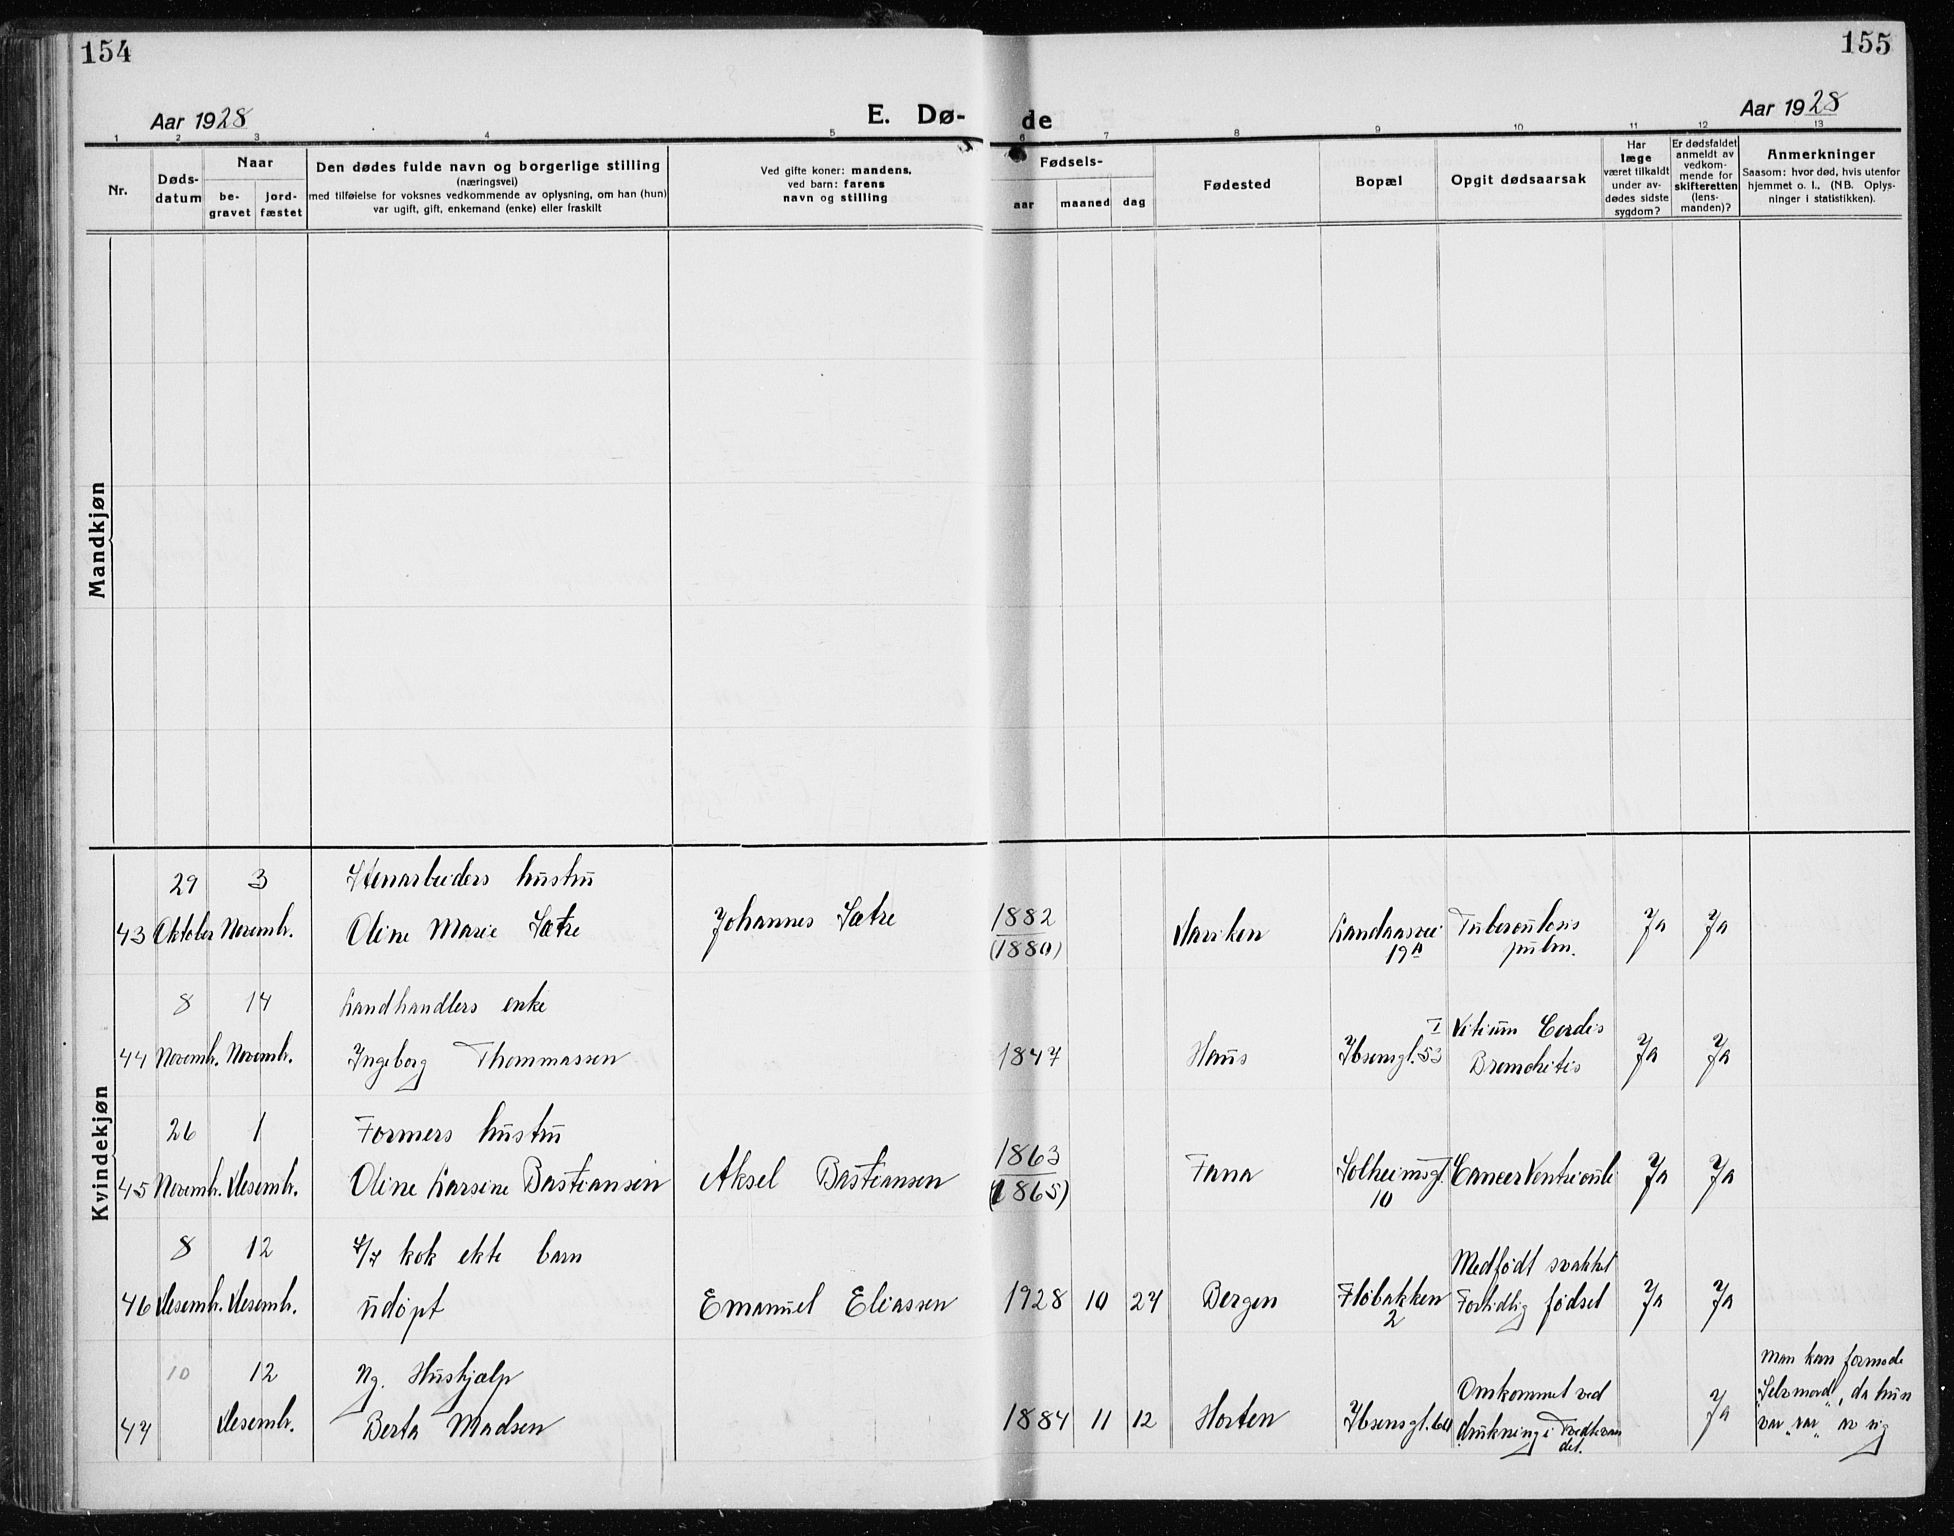 154
155
Aar 1928
E. Dø-
de
Aar 1928
1 2 3 4 5 6 7 8 9 10 11 12 13
Nr.
Døds-
datum
Naar
be-
gravet
jord-
fæstet
Den dødes fulde navn og borgerlige stilling
(næringsvei)
med tilføielse for voksnes vedkommende av oplysning, om han (hun)
var ugift, gift, enkemand (enke) eller fraskilt
Ved gifte koner: mandens,
ved barn: farens
navn og stilling
Fødsels-
aar
maaned
dag
Fødested
Bopæl
Opgit dødsaarsak
Har
læge
været tilkaldt
under av-
dødes sidste
sygdom?
Er dødsfaldet
anmeldt av
vedkom-
mende for
skifteretten
(lens-
manden)?
Anmerkninger
Saasom: hvor død, hvis utenfor
hjemmet o. l., (NB. Oplys-
ninger i statistikken).
Mandkjøn
Kvindekjøn
29 3 Stenarbeiders hustru
43 Oktober Novembr. Oline Marie Sætre Johannes Sætre 1882
(1880)
Landaasvei
19 A
Tuberculosis
pulm.
Ja Ja
8 14 Landhandlers enke
44 Novembr. Novembr. Ingeborg Thommassen 1847 Haus Ibsensgt. 53 I
Vitium Cordis
Bronchitis
Ja Ja
26 1 Formers hustru
45 Novembr. Desembr. Oline Larsine Bastiansen Aksel Bastiansen 1863
(1865)
Fana
Solheimsgt.
10
Cancer Ventriculi
Ja Ja
8 12 kok ekte barn
46 Desembr. Desembr. udøpt Emanuel Eliassen 1928 10 24 Bergen
Fløbakken
2
Medfødt svakhet
Fortidlig fødsel
Ja Ja
10 12 Ug. Hushjælp
47 Desembr. Berta Madsen 1884 11 12 Horten Ibsensgt. 60
Omkommet ved
drukning i Tvedtevan
det.
Ja
man kan formode
"Selvmord", da hun
var "rar" av sig